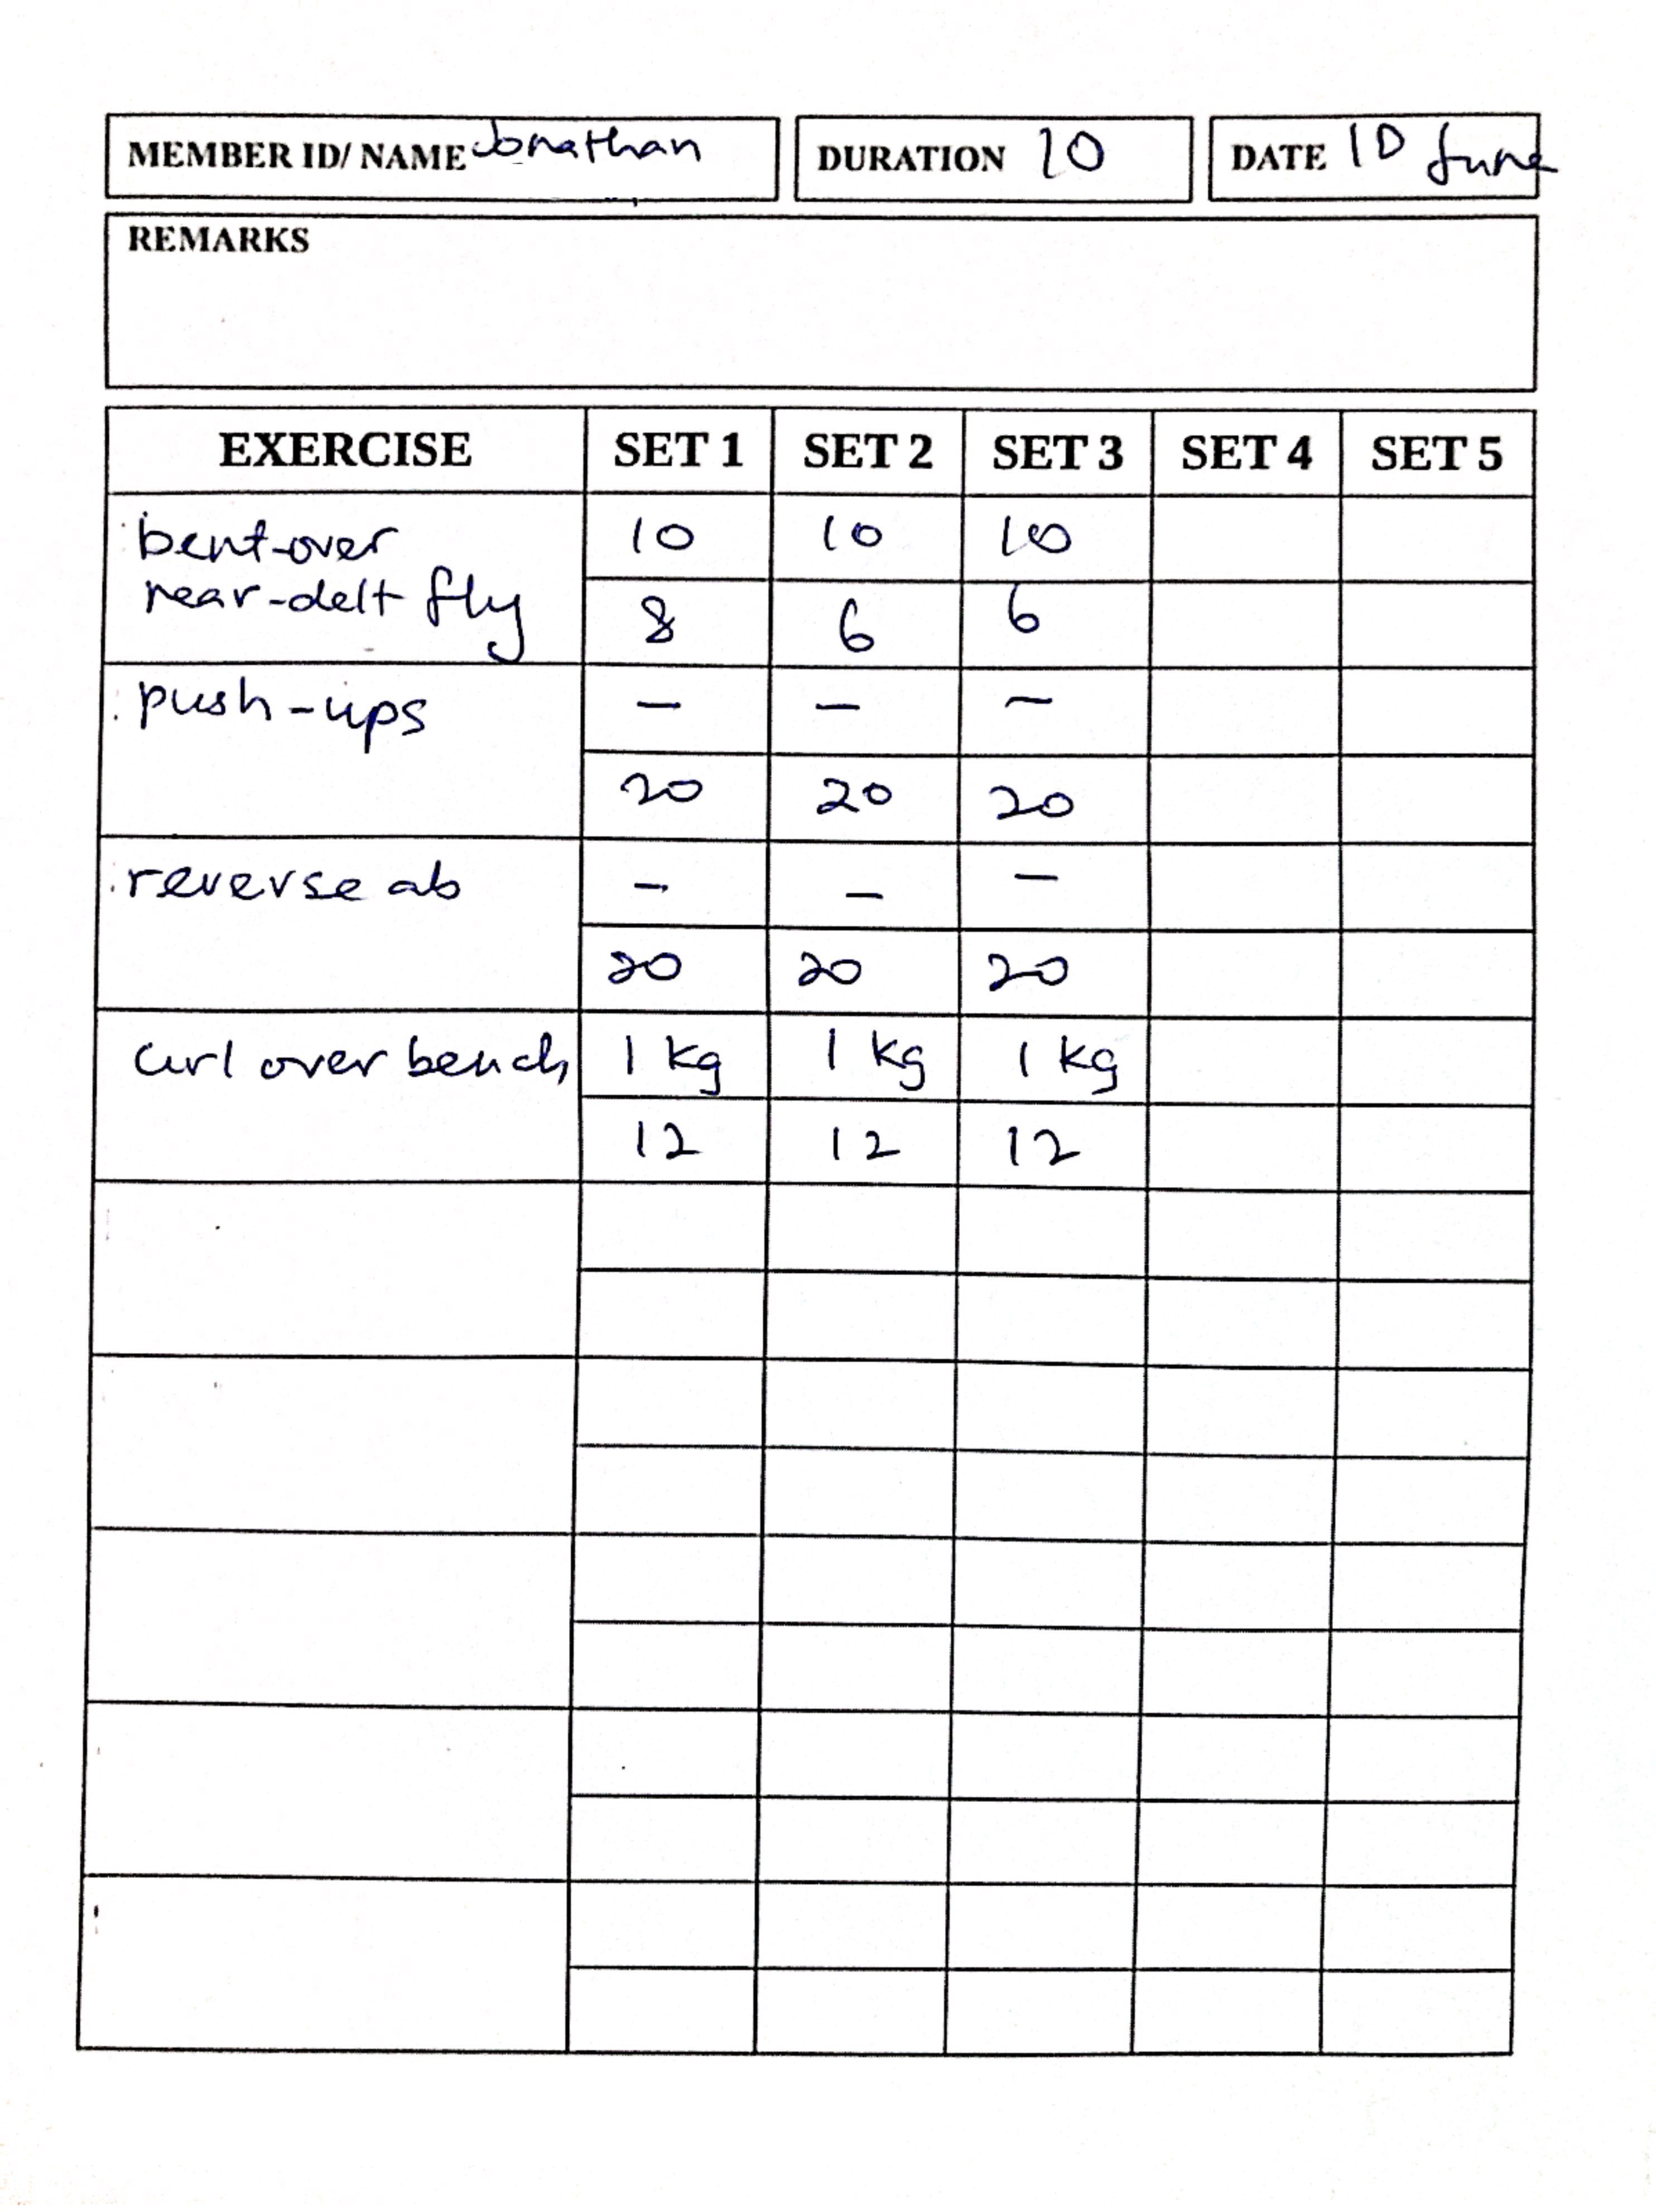 MEMBER ID/ NAME Jonathan DURATION 10 DATE 10 June
REMARKS
EXERCISE SET 1 SET 2 SET 3 SET 4 SET 5
bent-over 10 10 10
rear-delt fly 8 6 6
push-ups - - -
20 20 20
reverse ab - - -
20 20 20
curl over bench 1 kg 1 kg 1 kg
12 12 12